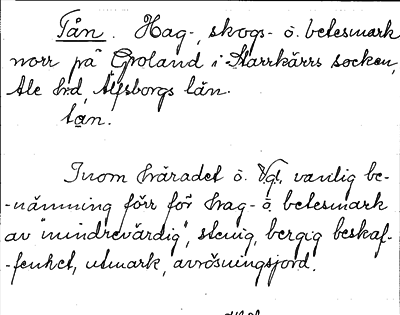 Tån. Hag-, skogs- o. betesmark
norr på Groland i Starrkärrs socken,
Ale hd, Älfsborgs län.
tån.
Inom häradet o. Vg. vanlig be-
-nämning förr för hag- o. betesmark
av "mindrevärdig", stenig, bergig beskaf-
-fenhet, utmark, avrösningsjord.